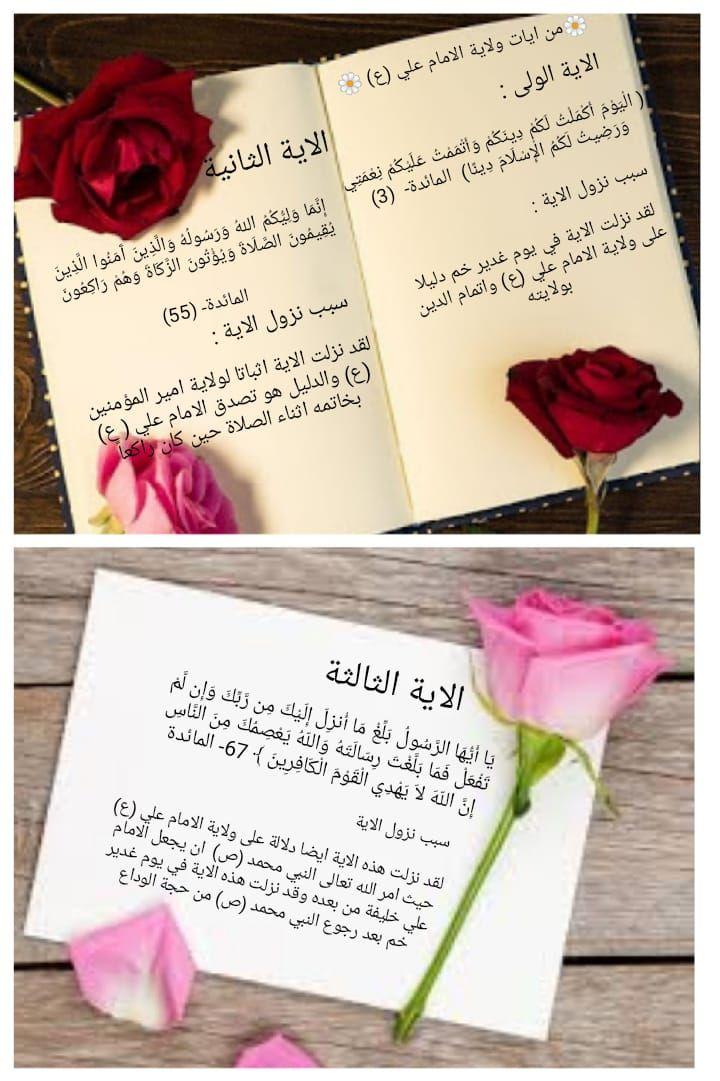 من ايات ولاية الامام علي (ع)
الاية الولى :
( الْيَوْمَ أَكْمَلْتُ لَكُمْ دِينَكُمْ وَأَتْمَمْتُ عَلَيْكُمْ نِعْمَتِي
وَرَضِيتُ لَكُمُ الْإِسْلَامَ دِينًا) المائدة- (3)
سبب نزول الاية :
لقد نزلت الاية في يوم غدير خم دليلا
على ولاية الامام علي (ع) واتمام الدين
بولايته
الاية الثانية
إِنَّمَا وَلِيُّكُمُ اللهُ وَرَسُولُهُ وَالَّذِينَ آمَنُوا الَّذِينَ
يُقِيمُونَ الصَّلَاةَ وَيُؤْتُونَ الزَّكَاةَ وَهُمْ رَاكِعُونَ
المائدة- (55)
سبب نزول الاية :
لقد نزلت الاية اثباتا لولاية امير المؤمنين
(ع) والدليل هو تصدق الامام علي ( ع)
بخاتمه اثناء الصلاة حين كان راكعا
الاية الثالثة
يَا أَيُّهَا الرَّسُولُ بَلِّغْ مَا أُنزِلَ إِلَيْكَ مِن رَّبِّكَ وَإِن لَّمْ
تَفْعَلْ فَمَا بَلَّغْتَ رِسَالَتَهُ وَاللّهُ يَعْصِمُكَ مِنَ النَّاسِ
إِنَّ اللّهَ لاَ يَهْدِي الْقَوْمَ الْكَافِرِينَ ﴾· 67- المائدة
سبب نزول الاية
لقد نزلت هذه الاية ايضا دلالة على ولاية الامام علي (ع)
حيث امر الله تعالى النبي محمد (ص) ان يجعل الامام
علي خليفة من بعده وقد نزلت هذه الاية في يوم غدير
خم بعد رجوع النبي محمد (ص) من حجة الوداع